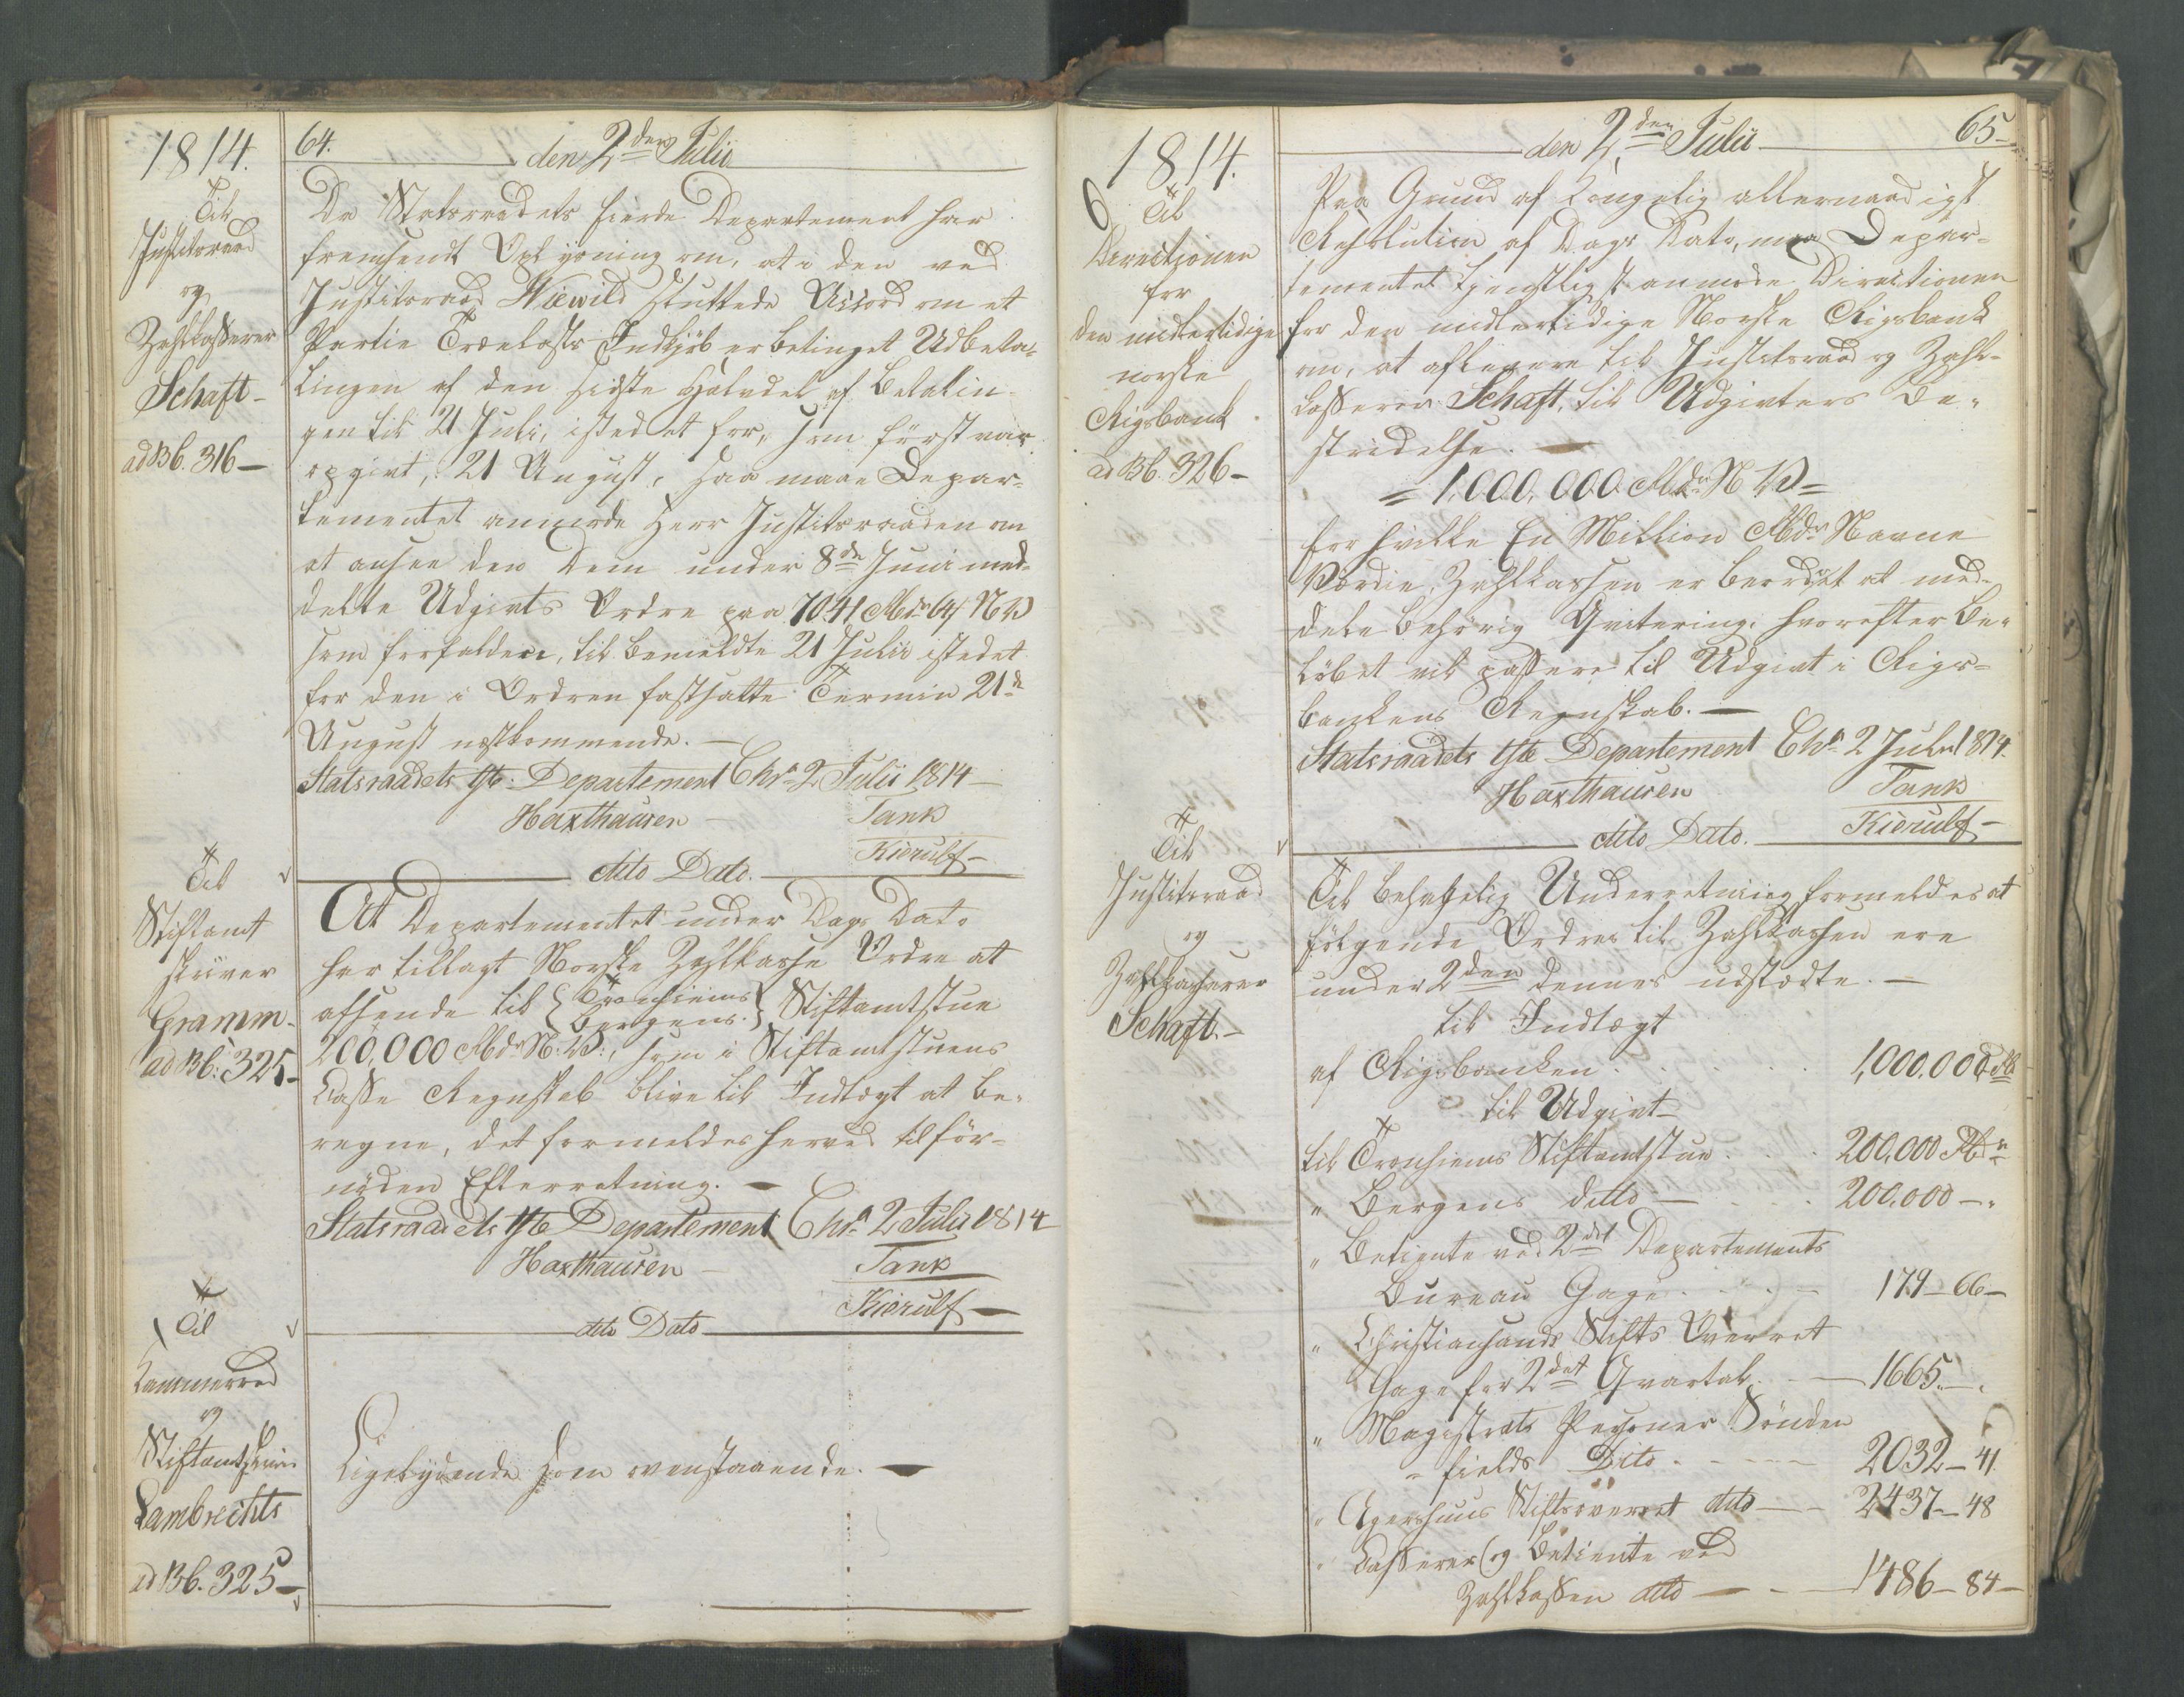 1814.
64.
den 2den Julii
Til
Justitsraad
og
Zahlkasserer
Schaft-
ad Bb. 316-
Da Statsraadets fierde Departement har
fremsendt Oplysning om, at i den ved
Justitsraad Niewild sluttede Accord om et
Partie Trælasts Indkjöb er betinget Udbeta-
lingen af den sidste Halvdel af Betalin-
gen til 21 Juli, istedet for, som först var
opgivt, 21 August, saa maae Depar-
tementet anmode Herr Justitsraaden om
at ansee den Dem under 8de Juni med-
deelte Udgivts Ordre paa 7041 Rbdr 64 s N V
som forfalden, til bemeldte 21 Julii istedet
for den i Ordren fastsatte Termin 21de
August næstkommende. -
Statsraadets 5te Departement Chra 2 Julii 1814-
Haxthausen - Tank
Kierulf-
dito Dato.
Til
Stiftamt
skriver
Gramm-
ad Bb: 325-
At Departementet under Dags Dato
har tillagt Norske Zahlkasse Ordre at
afsende til {Tronhiems Bergens} Stiftamtstue
200,000 Rbdr N: V:, som i Stiftamtstuens
Casse Regnskab blive til Indtægt at be-
regne, det formeldes herved til för-
nöden Efterretning. -
Statsraadets 5te Departement Chra 2 Julii 1814
Haxthausen - Tank
Kierulf-
dito Dato
Til
Kammerraad
og
Stiftamtskriver
Lambrechts
ad Bb. 325-
Ligelydende som ovenstaaende. -
1814.
den 2den Julii
65-
6
Til
Directionen
for
den midlertidige
norske
Rigsbank
ad Bb. 326-
Paa Grund af Kongelig allernaadigst
Resolution af Dags Dato, maa Depar-
tementet tjenstligst anmode Directionen
for den midlertidige Norske Rigsbank
om, at aflevere til Justitsraad og Zahl-
kasserer Schaft, til Udgivters Be-
stridelse. -
= 1,000,000 Rbdr N V =
for hvilke En Million Rbdr Navne
Værdie, Zahlkassen er beordret at med-
dele behörig Qvitering, hvorefter Be-
löbet vil passere til Udgivt i Rigs-
bankens Regnskab. -
Statsraadets 5te Departement Chra 2 Juli 1814.
Haxthausen Tank
Kierulf-
dito Dato.
Til
Justitsraad
og
Zahlkasserer
Schaft.-
Til behagelig Underretning formeldes at
fölgende Ordres til Zahlkassen ere
under 2den dennes udstædte. -
til Indtægt
af Rigsbanken . . . . 1,000,000 Rb
til Udgivt
til Tronhiems Stiftamtstue . . . 200,000 Rbdr
" Bergens ditto - . . . 200,000 - "
" Betiente ved 2det Departements
Bureau Gage . . . - 179-66-
" Christiansands Stifts Overret
Gage for 2det Qvartal. - 1665.-.
" Magistrats Personer Sönden
- fields Dito . - - - 2032-41
" Agershuus Stiftsoverret dito - - 2437-48
" Casserer og Betiente ved
Zahlkassen dito - - 1486-84-